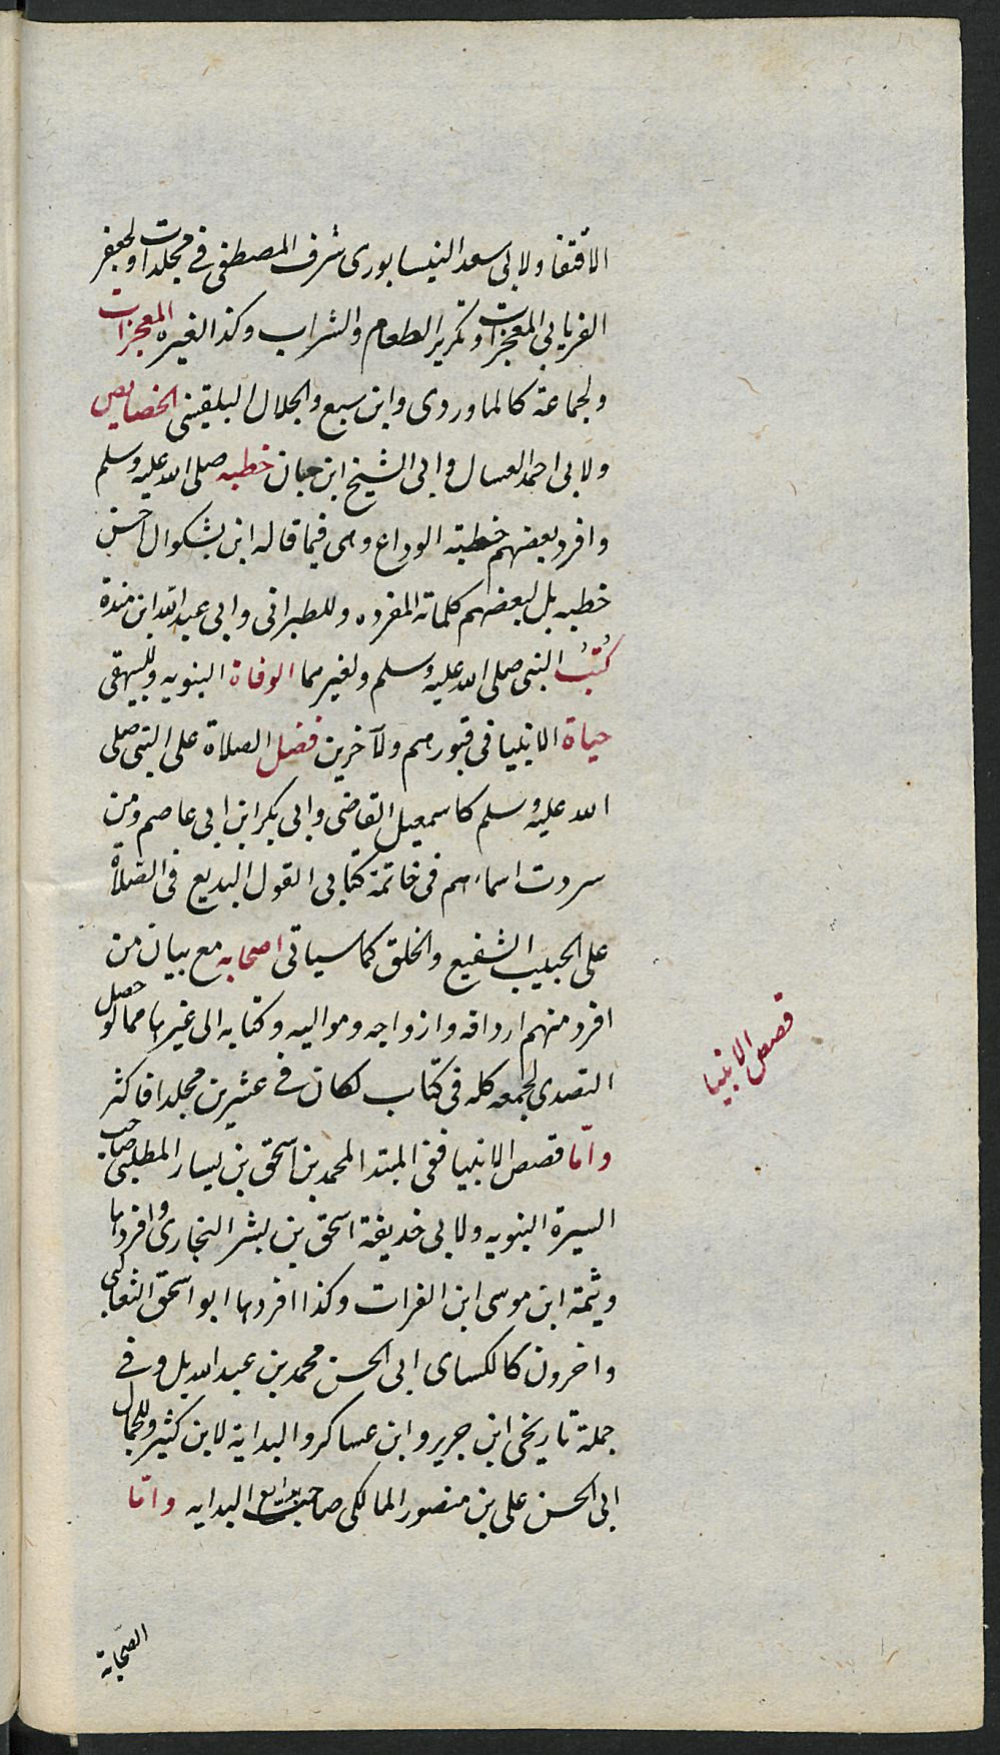 الاقتفا ولابى سعد النيسابورى شرف المصطفى فى مجلدات ولجعفر
الفريابى المعجزات وتكرير الطعام والشراب وكذا لغيره المعجزات
ولجماعة كالماوردى وابن سبع والجلال البلقينى الخصايص
ولابى احمد العسال وابى الشيخ ابن حبان خطبه صلى الله عليه وسلم
وافرد بعضهم خطبته الوداع وهى فيما قاله ابن بشكوال احسن
خطبه بل لبعضهم كلماته المفرده وللطبرانى وابى عبد الله ابن مندة
كُتبُ النبى صلى الله عليه وسلم ولغيرهما الوفاة النبويه وللبيهقى
حياة الانبيا فى قبورهم ولآخرين فضل الصلاة على النبى صلى
الله عليه وسلم كاسمعيل القاضى وابى بكر ابن ابى عاصم ومن
سردت اسماءهم فى خاتمة كتابى القول البديع فى الصلاة
على الحبيب الشفيع والخلق كما سياتى اصحابه مع بيان من
افرد منهم اردافه وازواجه ومواليه وكتابه الى غيرها مما لو حصل
التصدى لجمعه كله فى كتاب لكان فى عشرين مجلدا فاكثر
وامّا قصص الانبيا ففى المبتدا لمحمد بن اسحق بن يسار المطلبى صاحب
السيرة النبويه ولابى حذيفة اسحق بن بشر البخارى وافردها
وثيمة ابن موسى ابن الفرات وكذا افردها ابو اسحق الثعالبى
واخرون كالكساى ابى الحسن محمد بن عبد الله بل وفى
جملة تاريخى ابن جرير وابن عساكر والبداية لابن كثير وللجمال
ابى الحسن على بن منصور المالكى صاحب بدايع البدايه وامّا
الصحابة
قصص الانبيا